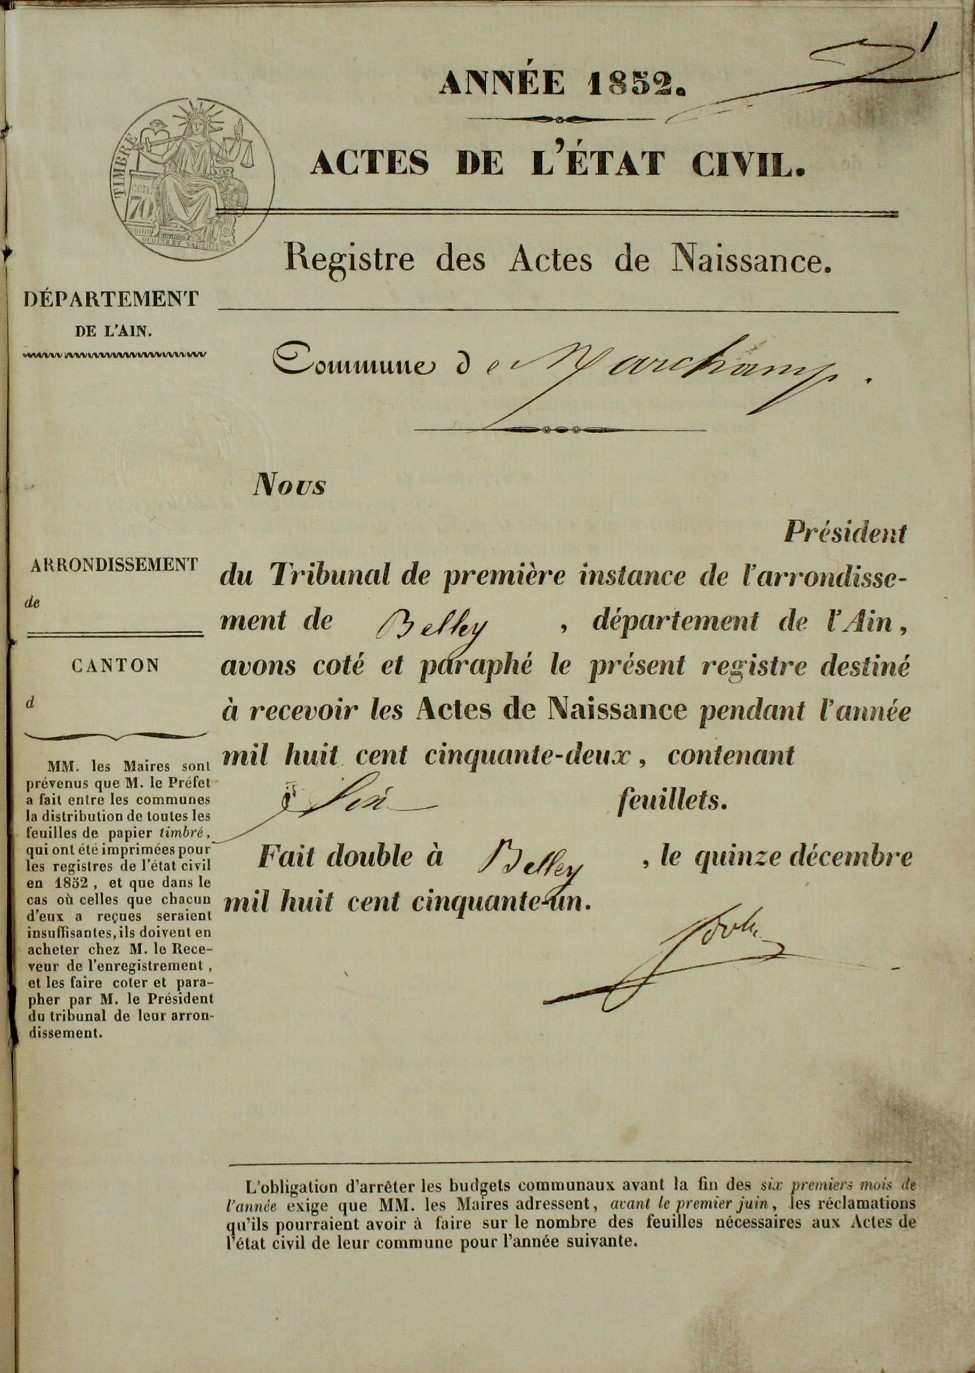 1
ANNÉE 1852.
ACTES DE L'ÉTAT CIVIL.
TIMBRE
70
Registre des Actes de Naissance.
DÉPARTEMENT
DE L'AIN.
Commune de Marchamp.
Nous
Président
du Tribunal de première instance de l'arrondisse-
ment de Belley, département de l'Ain,
avons coté et paraphé le présent registre destiné
à recevoir les Actes de Naissance pendant l'année
mil huit cent cinquante-deux, contenant
Six feuillets.
Fait double à Belley, le quinze décembre
mil huit cent cinquante-un.
ARRONDISSEMENT
de
CANTON
d
MM. les Maires sont
prévenus que M. le Préfet
a fait entre les communes
la distribution de toutes les
feuilles de papier timbré,
qui ont été imprimées pour
les registres de l'état civil
en 1852, et que dans le
cas où celles que chacun
d'eux a reçues seraient
insuffisantes, ils doivent en
acheter chez M. le Rece-
veur de l'enregistrement,
et les faire coter et para-
pher par M. le Président
du tribunal de leur arron-
dissement.
L'obligation d'arrêter les budgets communaux avant la fin des six premiers mois de
l'année exige que MM. les Maires adressent, avant le premier juin, les réclamations
qu'ils pourraient avoir à faire sur le nombre des feuilles nécessaires aux Actes de
l'état civil de leur commune pour l'année suivante.